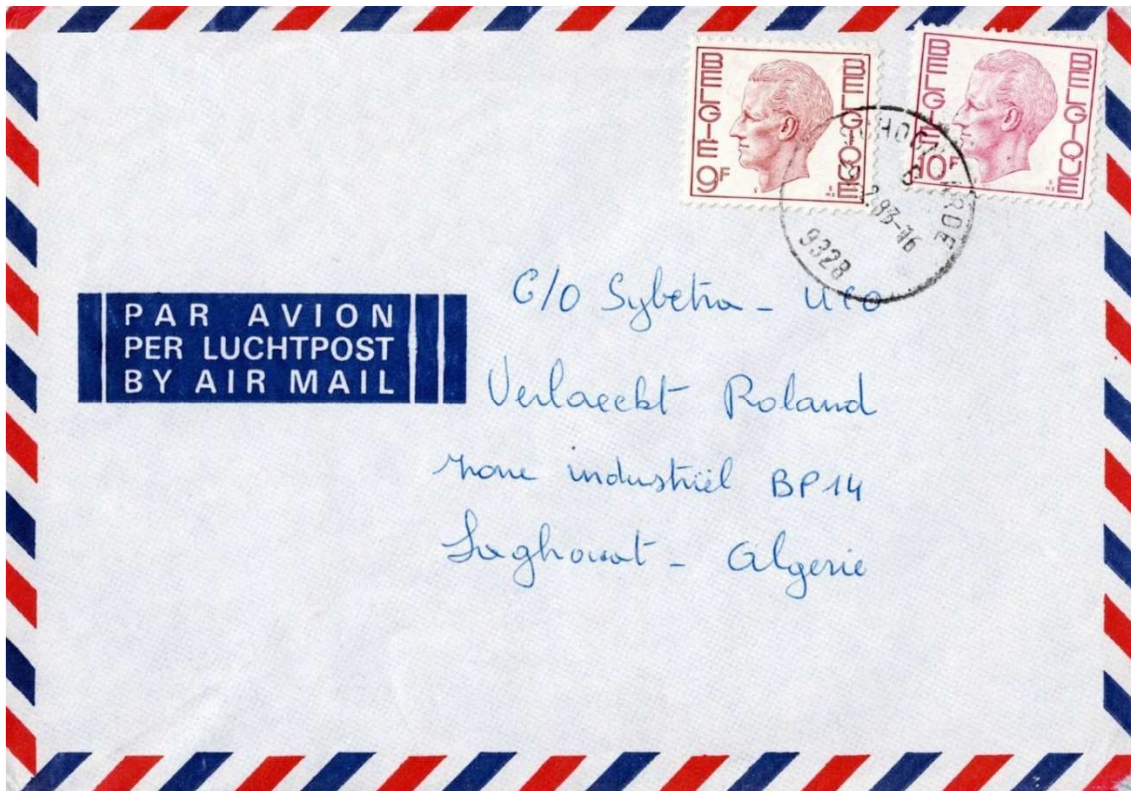 BELGIE
BELGIQUE
9F
BELGIE
BELGIQUE
10F
9328
PAR AVION
PER LUCHTPOST
BY AIR MAIL
C/O Sybetra - UCO
Verlaeckt Roland
zone industriël BP14
Laghouat - Algerie